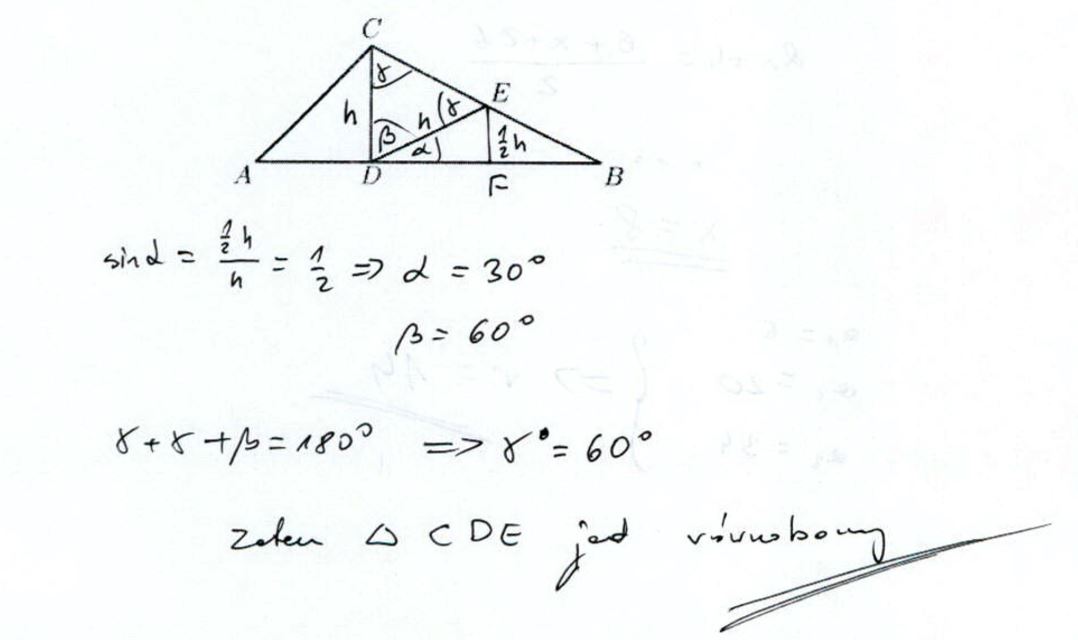 C
γ
E
h
h
γ
β
α
½h
A
D
F
B
sin α = ½h/h = 1/2 => α = 30°
β = 60°
γ + γ + β = 180° => γ = 60°
zatem △ CDE jest równoboczny